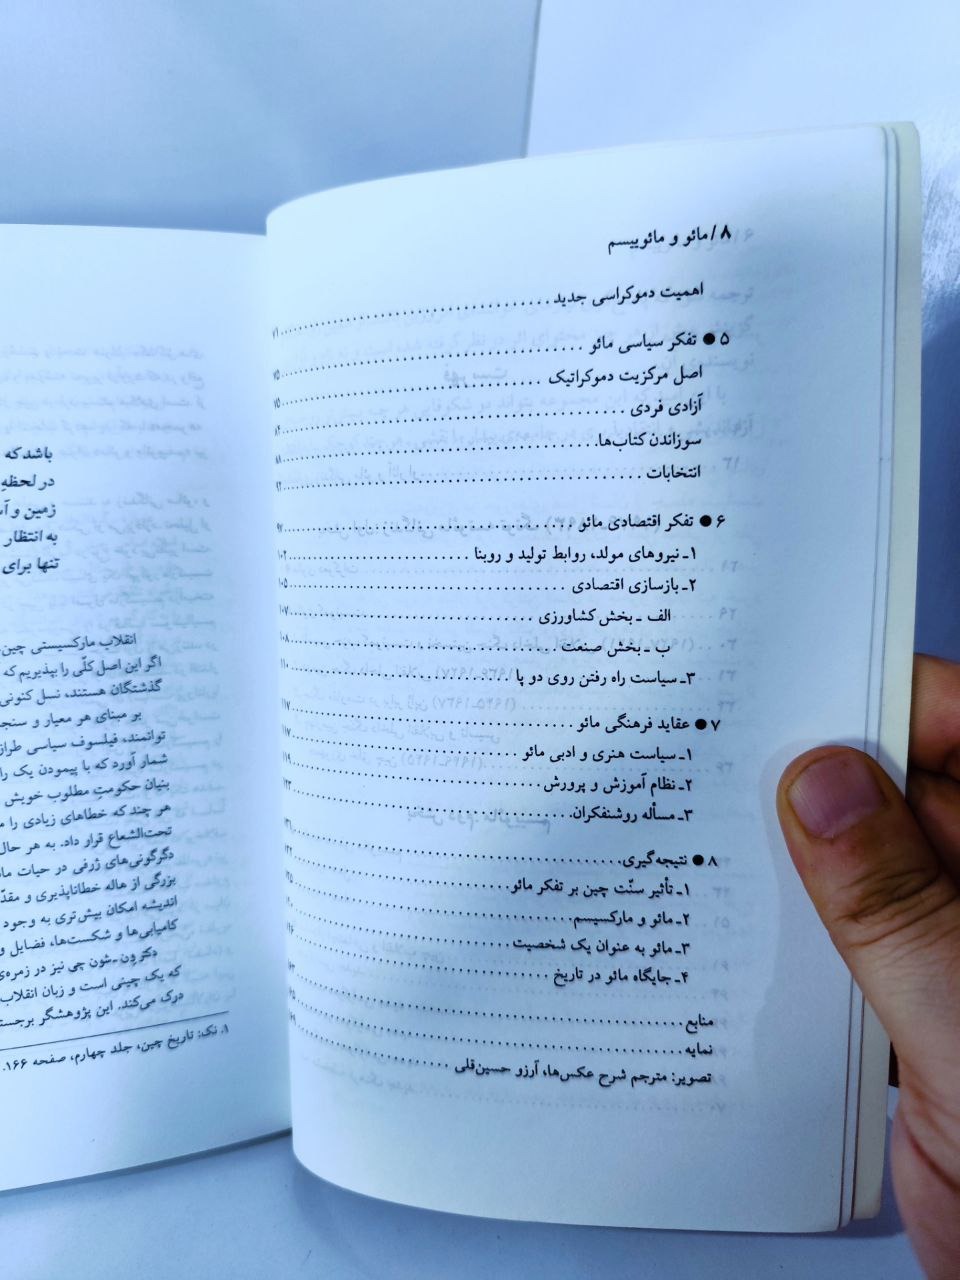 ۸ / مائو و مائوییسم
اهمیت دموکراسی جدید ........ ۷۱
۵ ● تفکر سیاسی مائو ........ ۷۵
اصل مرکزیت دموکراتیک ........ ۷۵
آزادی فردی ........ ۸۴
سوزاندن کتاب‌ها ........ ۸۸
انتخابات ........ ۹۲
۶ ● تفکر اقتصادی مائو ........ ۹۷
۱ـ نیروهای مولد، روابط تولید و روبنا ........ ۱۰۲
۲ـ بازسازی اقتصادی ........ ۱۰۵
الف ـ بخش کشاورزی ........ ۱۰۷
ب ـ بخش صنعت ........ ۱۰۸
۳ـ سیاست راه رفتن روی دو پا ........ ۱۱۰
۷ ● عقاید فرهنگی مائو ........ ۱۱۷
۱ـ سیاست هنری و ادبی مائو ........ ۱۱۷
۲ـ نظام آموزش و پرورش ........ ۱۱۹
۳ـ مسأله روشنفکران ........ ۱۲۳
۸ ● نتیجه‌گیری ........
۱ـ تأثیر سنّت چین بر تفکر مائو ........
۲ـ مائو و مارکسیسم ........
۳ـ مائو به عنوان یک شخصیت ........
۴ـ جایگاه مائو در تاریخ ........
منابع ........
نمایه ........
تصویر: مترجم شرح عکس‌ها، آرزو حسین‌قلی ........
باشد که
در لحظهٔ
زمین و
به انتظار
تنها برای
انقلاب مارکسیستی چین
اگر این اصل کلّی را بپذیریم که
گذشتگان هستند، نسل کنونی
بر مبنای هر معیار و
توانمند، فیلسوف سیاسی
شمار آورد که با پیمودن یک
بنیان حکومتِ مطلوب خویش
هر چند که خطاهای زیادی را
تحت‌الشعاع قرار داد. به هر حال
دگرگونی‌های ژرفی در حیات
بزرگی از هاله خطاناپذیری و
اندیشه امکان بیش‌تری به وجود
کامیابی‌ها و شکست‌ها، فضایل و
دکتر ون ـ شون چی نیز در زمره‌ی
که یک چینی است و زبان انقلاب
درک می‌کند. این پژوهشگر
۱. نک: تاریخ چین، جلد چهارم، صفحه ۱۶۶.